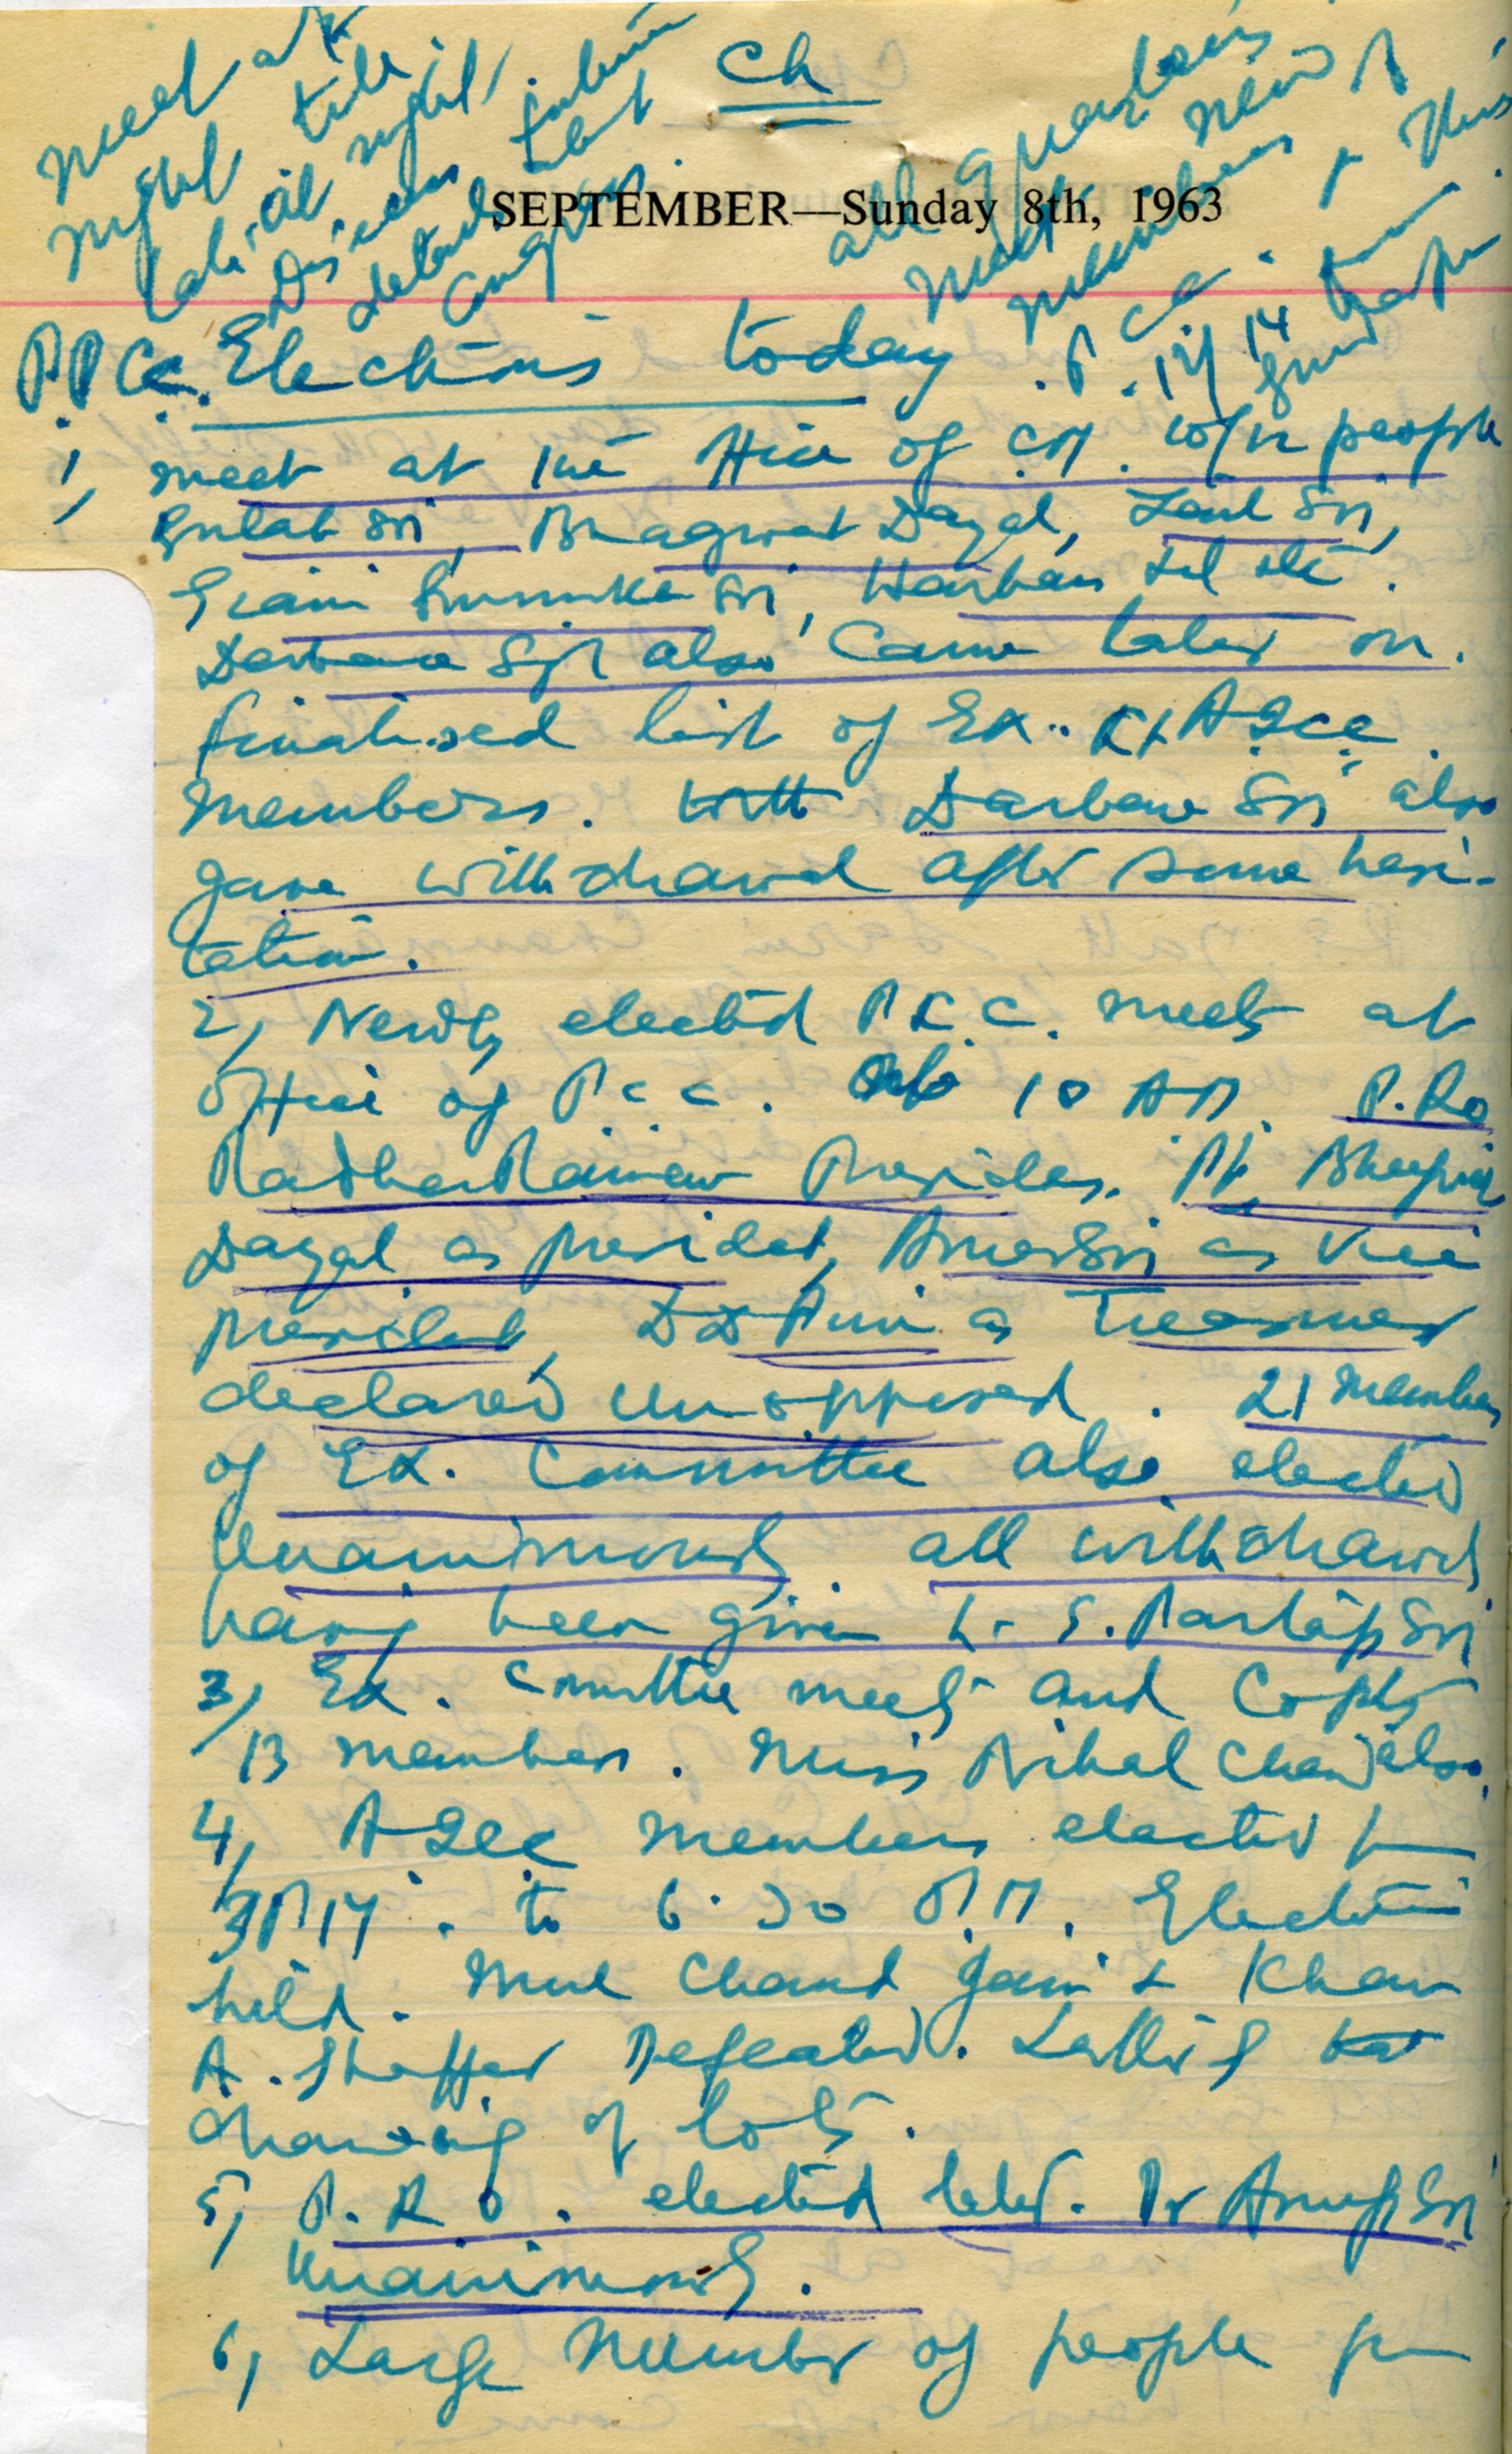 Ch
meet at
night till
late at night.
Discuss
detail that
all quarters
meet
members
new
14
SEPTEMBER—Sunday 8th, 1963
P.P.C.C. Elections today
1, meet at the office of C.M. w/h people
Gulab Sri, Bhagwat Dayal, Sri,
Giani Sri, Harbans Lal etc.
Darbara Sgh also came later on.
finalised list of Ex. & A2CC
members. Darbara Sri also
gave withdrawal after some hesi-
tation.
2, Newly elected P.C.C. meets at
office of P.C.C. 10 AM. P.Ro
Radha Raman Presides. Pt. Bhagwat
Dayal as president, Amar Sri as Vice
president, D D Puri as Treasurer
declared unopposed. 21 members
of Ex. Committee also elected
Unanimously all withdrawls
having been given to S. Partap Sri
3, Ex. Committee meets and Copts
13 members. Miss Nihal Chand also.
4, A2CC members elected from
3 P.M. to 6.30 P.M. Election
held. Mul Chand Jain & Khan
A. Ghaffar Defeated.
drawing of lots.
5, P.R.O. elected later. Dr Anup Sri
Unanimously.
6, Large Number of people from